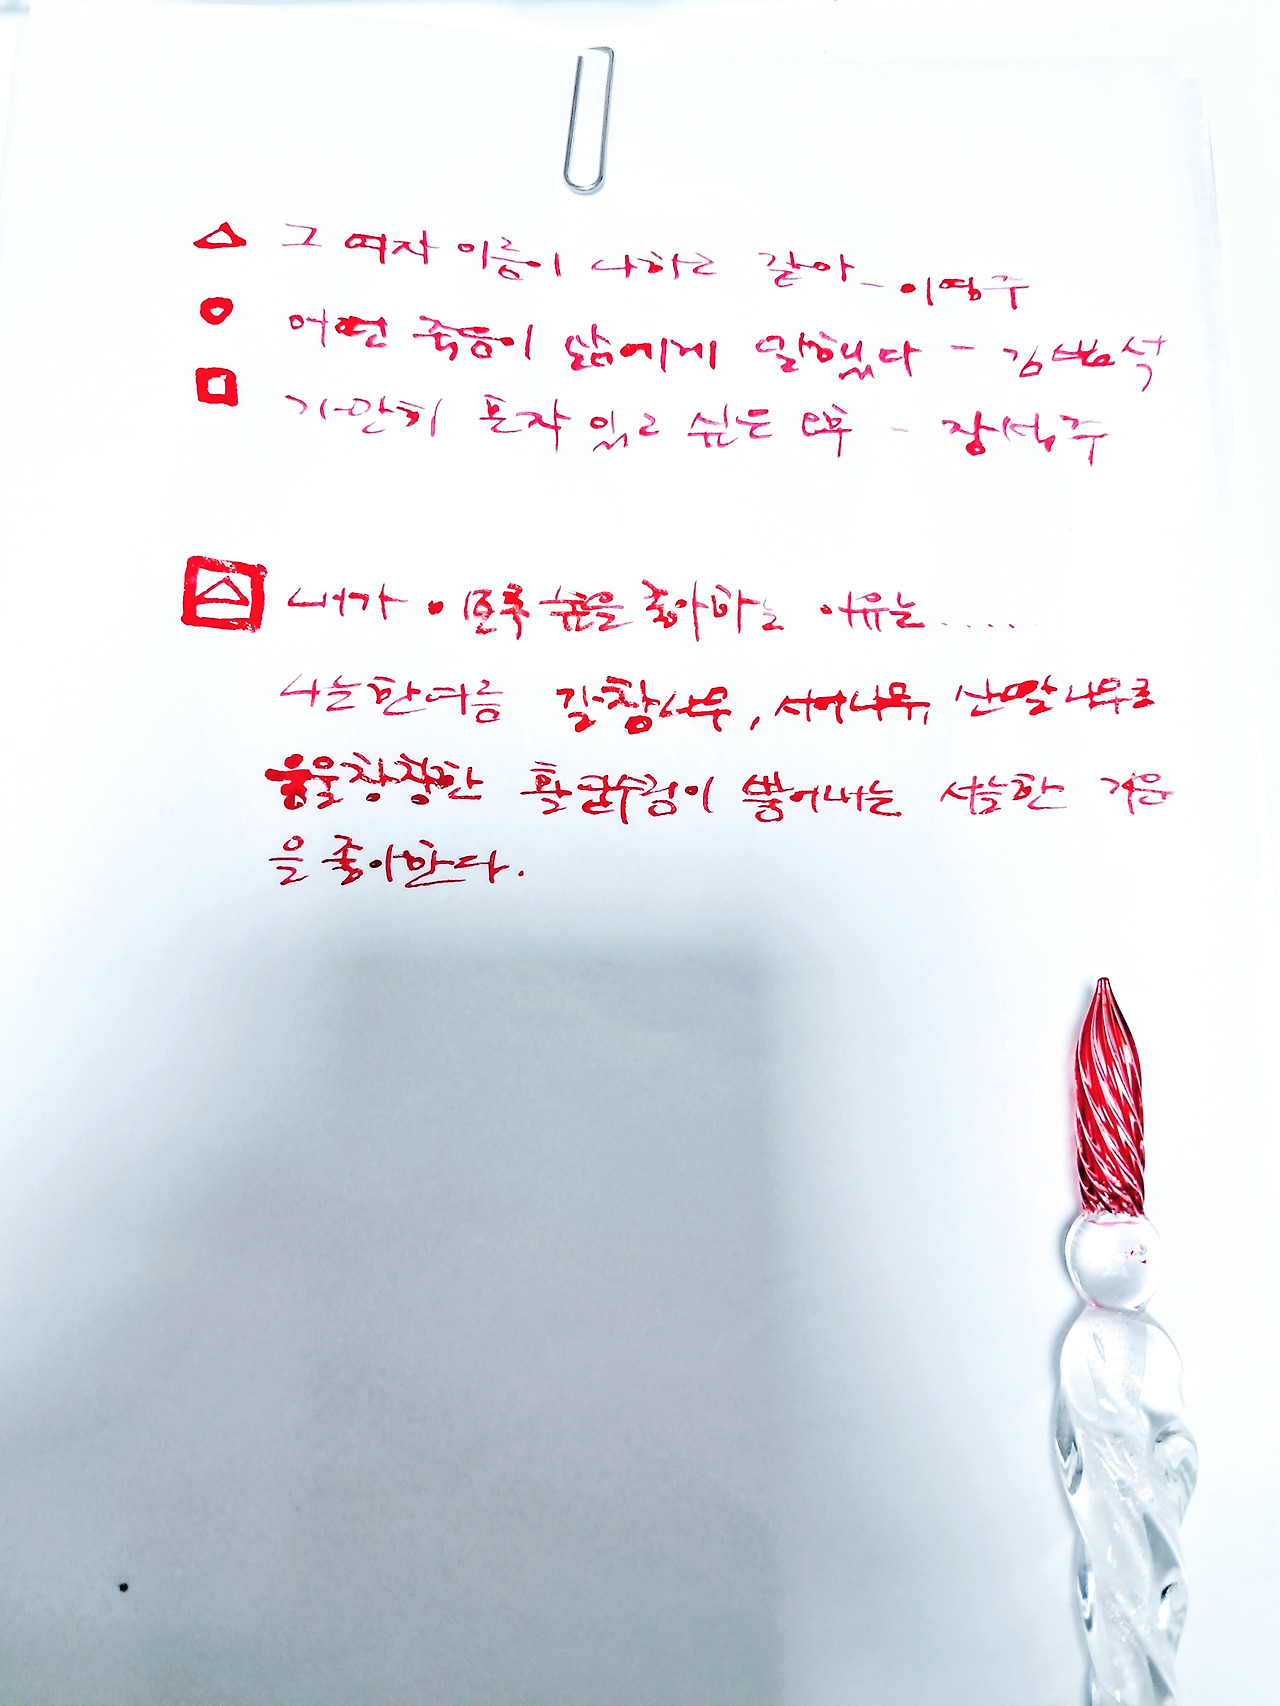 △ 그 여자 이름이 나하고 같아 - 이명주
○ 어떤 죽음이 삶에게 말했다 - 김범석
□ 가만히 혼자 있고 싶은 오후 - 장석주
내가 초록 숲을 좋아하는 이유는.....
나는 한여름 갈참나무, 서어나무, 산딸나무로
울울창창한 활엽수림이 뿜어내는 서늘한 기운
을 좋아한다.